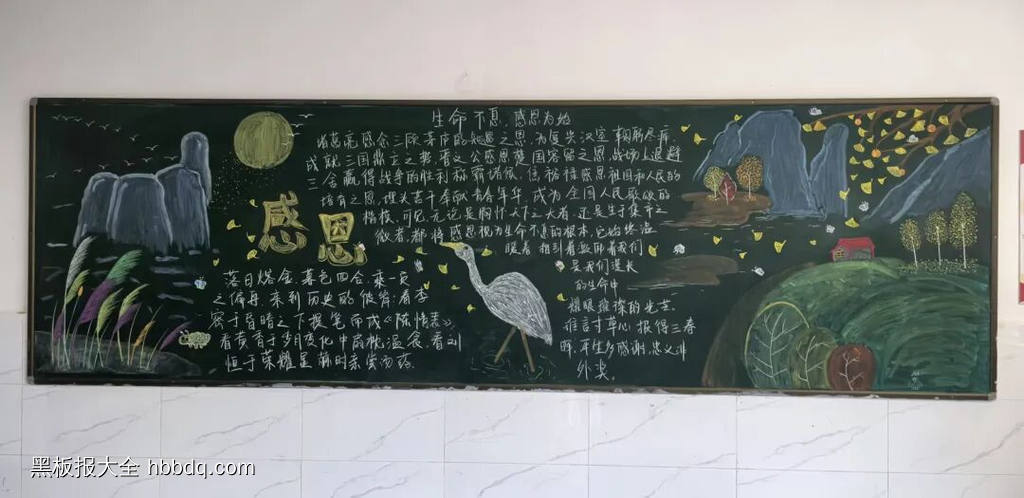 生命不息，感恩为始
诸葛亮感念三顾茅庐的知遇之恩，为复兴汉室鞠躬尽瘁
成就三国鼎立之势，晋文公感恩楚国容留之恩，战场上退避
三舍赢得战争的胜利
感恩祖国和人民的
培育之恩，埋头苦干奉献青春年华，成为全国人民歌颂的
楷模，可见，无论是胸怀天下之大者，还是生于
微者，都将感恩视为生命不息的根本，它始终温
暖着
是我们漫长
的生命中
耀眼璀璨的光芒
谁言寸草心，报得三春
晖，平生多感谢，忠义非
外奖。
感恩
落日熔金，暮色四合，乘一页
之偏舟，来到历史的彼岸，看李
密于昏暗之下提笔而成《陈情表》，
看黄香于岁月变化中扇枕温衾，看刘
恒于荣耀里朝时亲尝汤药。
黑板报大全 hbbdq.com